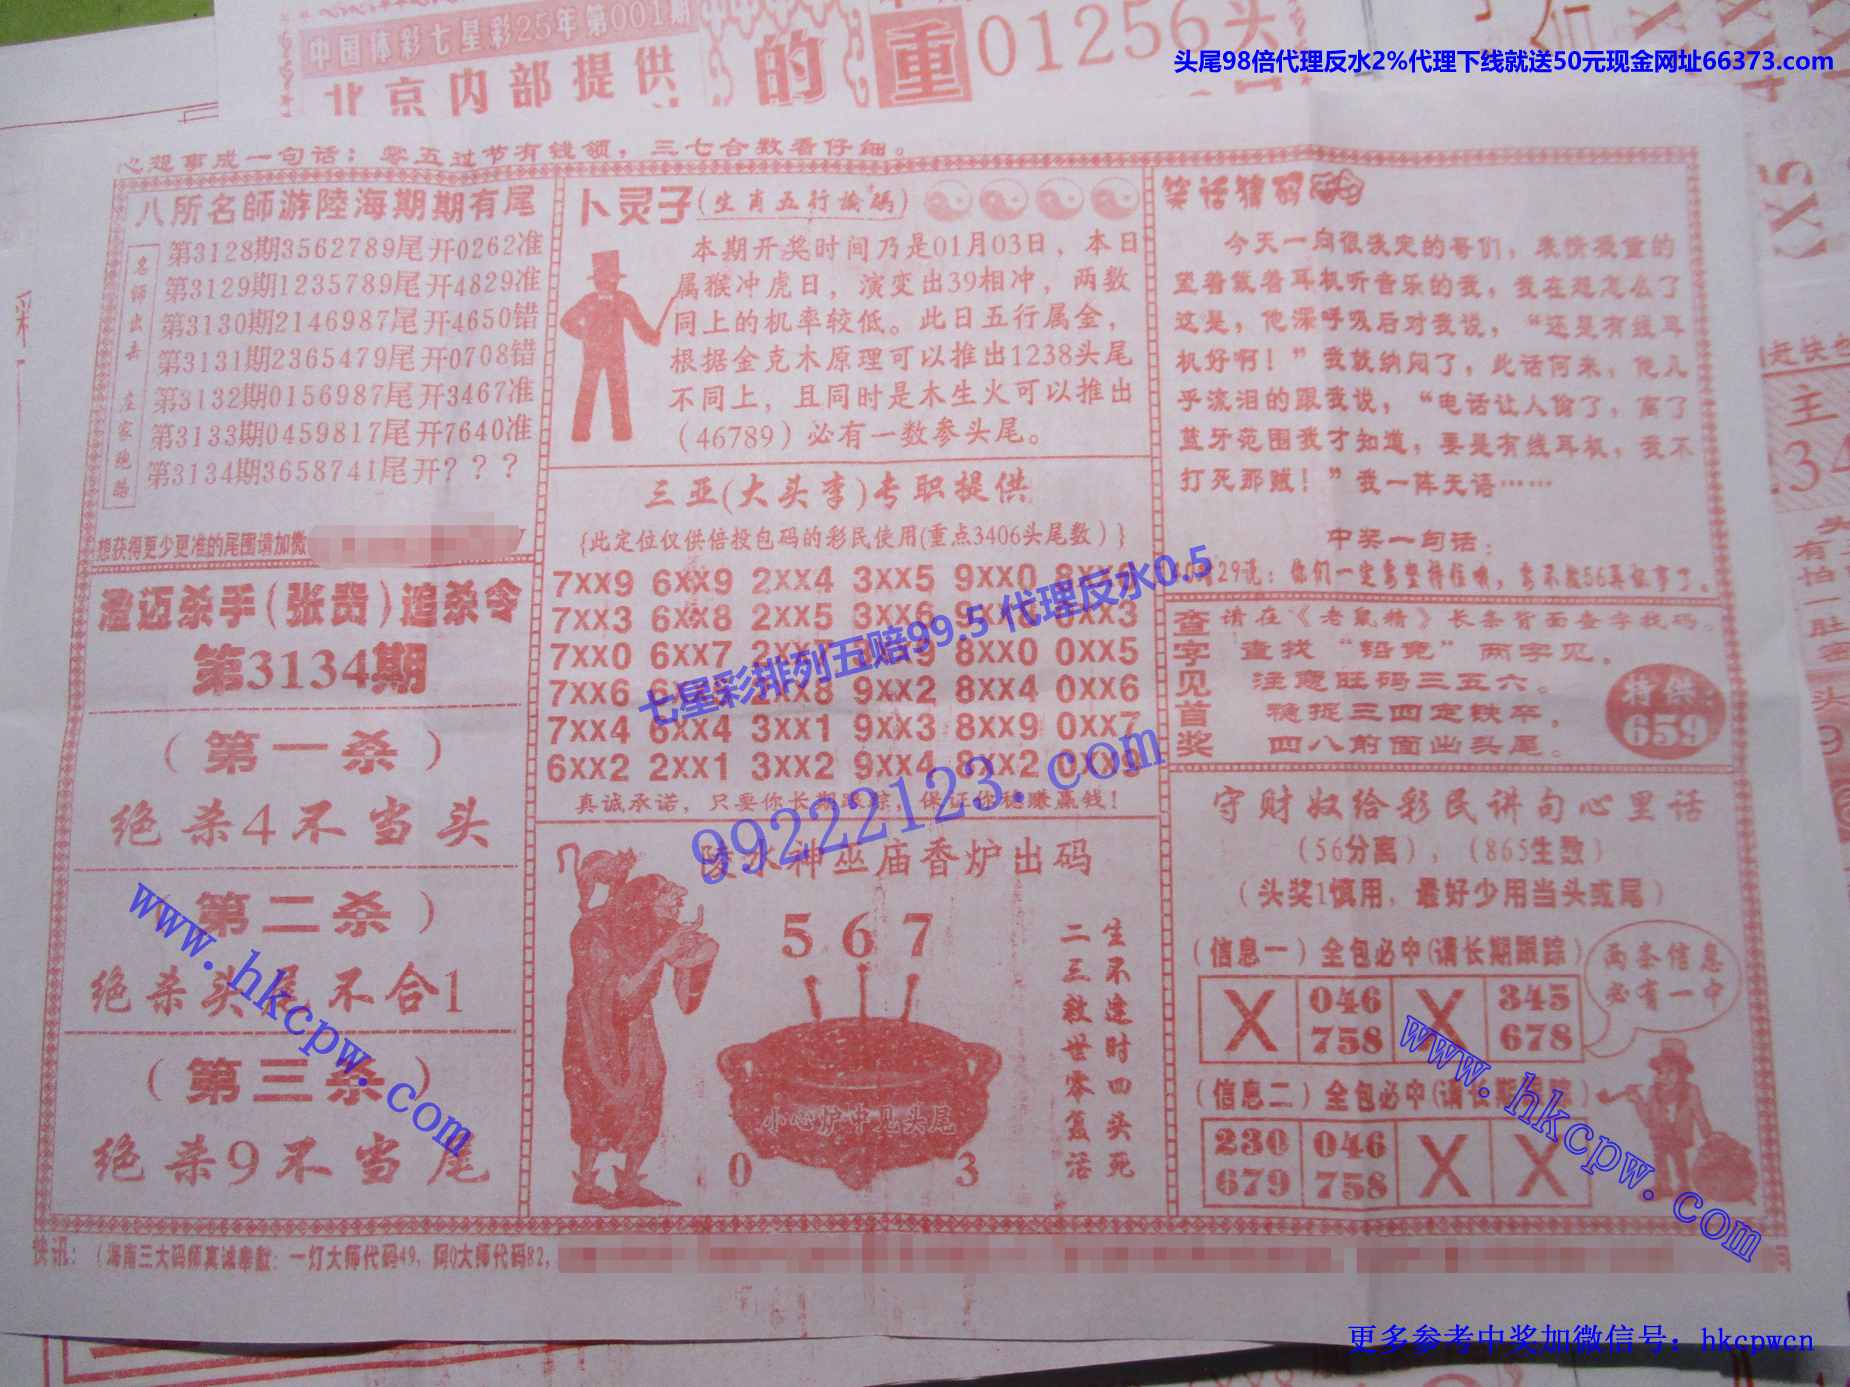 中国体彩七星彩25年第001期
北京内部提供
的
重
01256头
头尾98倍代理反水2%代理下线就送50元现金网址66373.com
心想事成一句话：零五过节有钱领，三七合数看仔细。
八所名師游陸海期期有尾
名師出击
庄家跑路
第3128期3562789尾开0262准
第3129期1235789尾开4829准
第3130期2146987尾开4650错
第3131期2365479尾开0708错
第3132期0156987尾开3467准
第3133期0459817尾开7640准
第3134期3658741尾开？？？
想获得更少更准的尾图请加微
澄迈杀手(张贵)追杀令
第3134期
（第一杀）
绝杀4不当头
（第二杀）
绝杀头尾不合1
（第三杀）
绝杀9不当尾
卜灵子(生肖五行論碼)
本期开奖时间乃是01月03日，本日
属猴冲虎日，演变出39相冲，两数
同上的机率较低。此日五行属金，
根据金克木原理可以推出1238头尾
不同上，且同时是木生火可以推出
（46789）必有一数参头尾。
三亚(大头李)专职提供
{此定位仅供倍投包码的彩民使用(重点3406头尾数)}
7XX9 6XX9 2XX4 3XX5 9XX0
7XX3 6XX8 2XX5 3XX6
7XX0 6XX7 8XX0 0XX5
7XX6 9XX2 8XX4 0XX6
7XX4 6XX4 3XX1 9XX3 8XX9 0XX7
6XX2 2XX1 3XX2 9XX4 8XX2 0XX9
真诚承诺，只要你长期跟踪，保证你稳赚赢钱！
七星彩排列五赔99.5 代理反水0.5
99222123.com
陵水神巫庙香炉出码
5 6 7
小心炉中见头尾
0 3
生不逢时四头死
二三救世零复活
笑话猜码
今天一向很淡定的哥们，表情凝重的
望着戴着耳机听音乐的我，我在想怎么了
这是，他深呼吸后对我说，“还是有线耳
机好啊！”我就纳闷了，此话何来，他几
乎流泪的跟我说，“电话让人偷了，离了
蓝牙范围我才知道，要是有线耳机，我不
打死那贼！”我一阵无语……
中奖一句话：
29说：你们一定要坚持住哦，要不然56真做事了。
查字见首奖
请在《老鼠精》长条背面查字找码。
查找“铅宽”两字见，
注意旺码三五六。
稳捉三四定铁卒，
四八前面出头尾。
特供：
659
守财奴给彩民讲句心里话
（56分离），（865生数）
（头奖1慎用，最好少用当头或尾）
（信息一）全包必中(请长期跟踪)
X 046 X 345
758 678
两条信息
必有一中
（信息二）全包必中(请长期跟踪)
230 046 X X
679 758
www.hkcpw.com
www.hkcpw.com
快讯：（海南三大码师真诚奉献：一灯大师代码49，阿Q大师代码82，
更多参考中奖加微信号：hkcpwcn